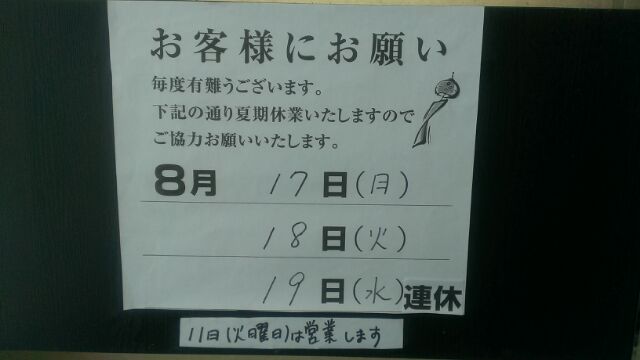 お客様にお願い
毎度有難うございます。
下記の通り夏期休業いたしますので
ご協力お願いいたします。
8月 17日(月)
18日(火)
19日(水)連休
11日(火曜日)は営業します